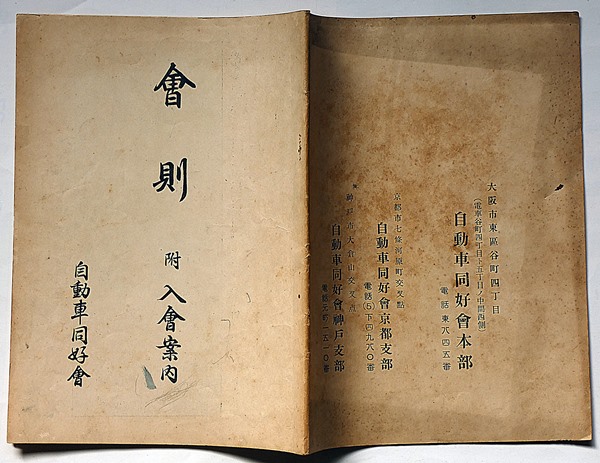 會則
附 入會案内
自動車同好會
大阪市東區谷町四丁目
(電車谷町四丁目ト五丁目ノ中間西側)
自動車同好會本部
電話東八四五番
京都市七條河原町交叉點
自動車同好會京都支部
電話(5)下四九八〇番
神戸市大倉山交叉点
自動車同好會神戸支部
電話元町一五一〇番